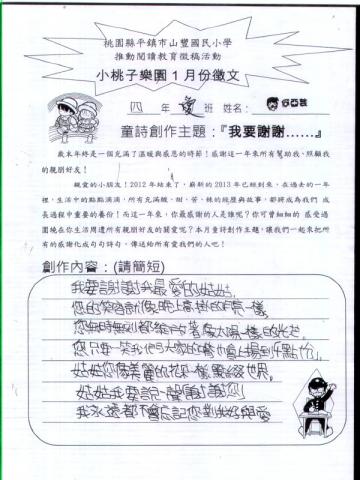 桃園縣平鎮市山豐國民小學
推動閱讀教育徵稿活動
小桃子樂園1月份徵文
四 年 愛 班 姓名:
童詩創作主題:『我要謝謝……』
歲末年終是一個充滿了溫暖與感恩的時節!感謝這一年來所有幫助我、照顧我
的親朋好友!
親愛的小朋友!2012年結束了,嶄新的2013年已經到來,在過去的一年
裡,生活中的點點滴滴,所有充滿酸、甜、苦、辣的經歷與故事,都將成為我們 成
長過程中重要的養份!而這一年來,你最感謝的人是誰呢?你可曾細細的 感受過
圍繞在你生活周遭所有親朋好友的關愛呢?本月童詩創作主題,讓我們一起來把所
有的感謝化成句句詩句,傳送給所有愛我們的人吧!
創作內容:(請簡短)
我要謝謝我最愛的姑姑,
您的笑容就像晚上高掛的月亮一樣,
您無時無刻都綻放著像太陽一樣的光芒,
您只要一笑我也大家的嘴也會上揚到「點伯」,
姑姑您像美麗的花一樣點綴世界。
姑姑我要說一聲「謝謝您」
我永遠都不會忘記您對我好與愛